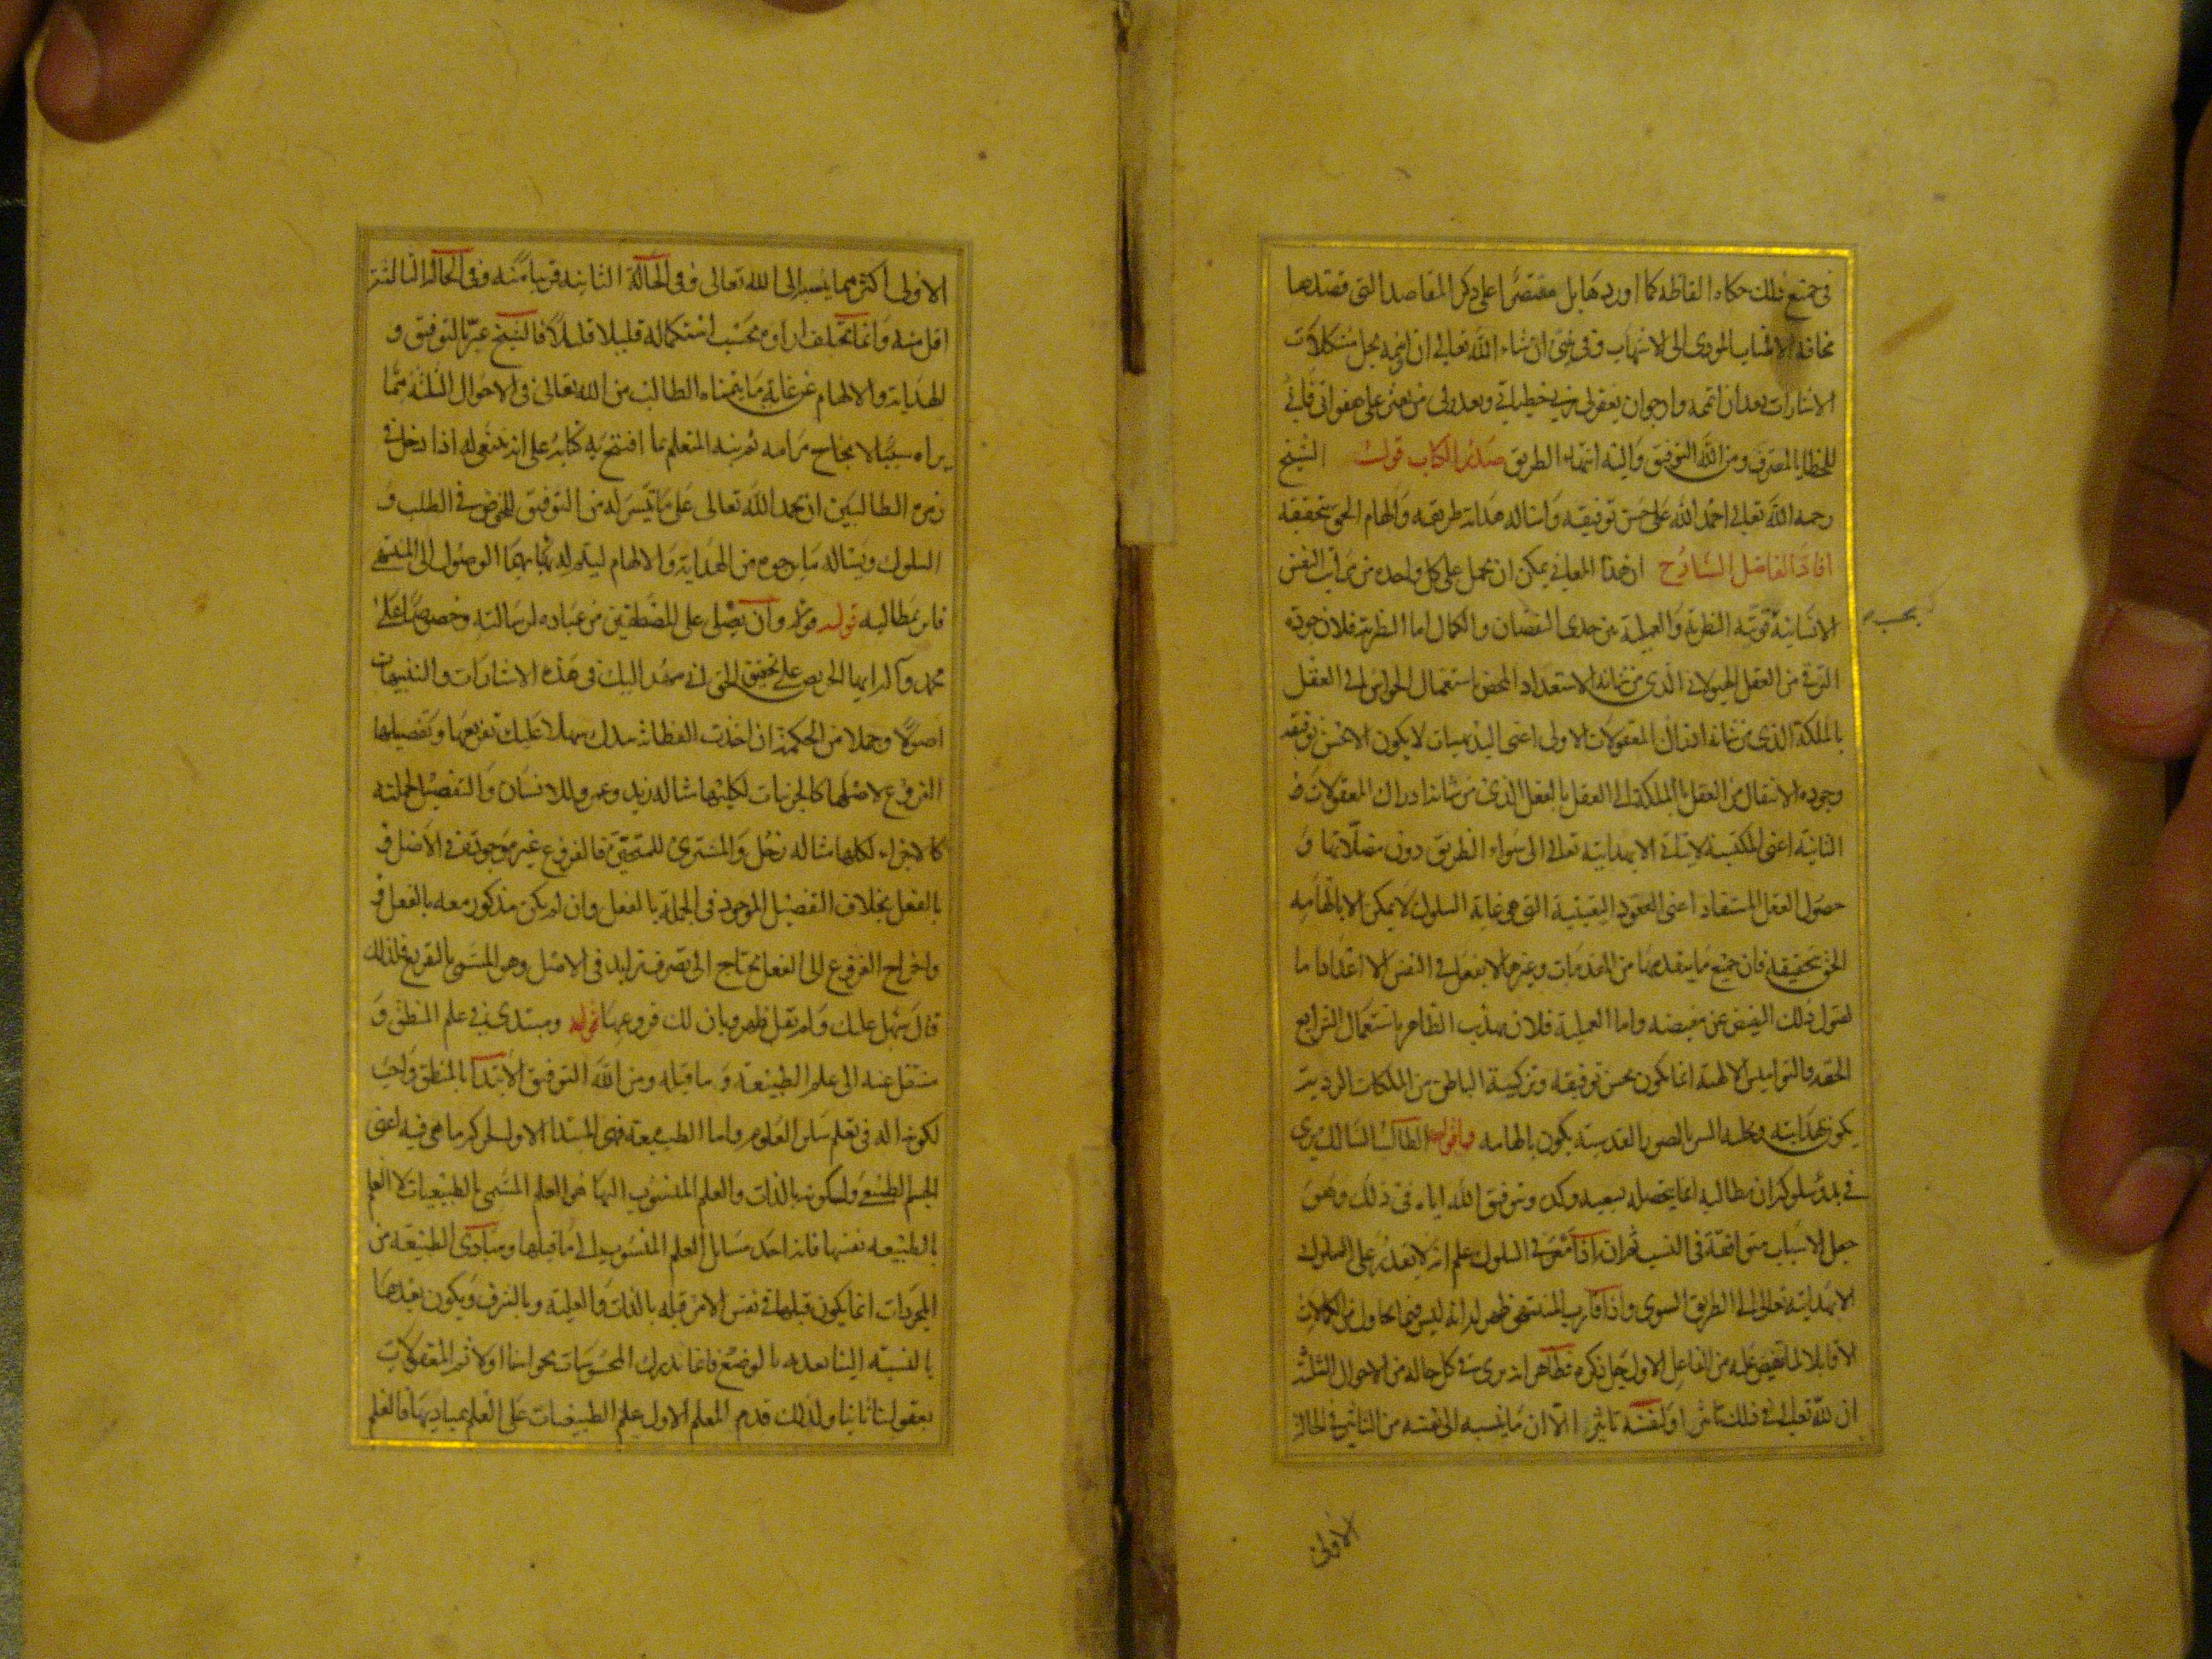 في جميع ذلك حكاه الفاظه كما اوردها بل مقتصرا على ذكر المقاصد التي قصدها
مخافة الاطناب المودي الى الاسهاب وفي نيتي ان شاء الله تعالى ان اوضحه بحل مشكلات
الاشارات بعد ان اتممه وارجو ان يغفر لي ربي خطيئاتي ويعذرني من يعثر على هفواتي فاني
للخطايا لمعترف ومن الله التوفيق واليه انتهاء الطريق صدر الكتاب قوله الشيخ
رحمه الله تعالى احمد الله على حسن توفيقه واساله هداية طريقه والهام الحق بتحقيقه
افاد الفاضل الشارح ان هذه المعاني يمكن ان يحمل على كل واحده من مراتب النفس
الانسانية قوتيه النظرية والعملية بين حدى النقصان والكمال اما النظرية فلان جودة
بحسب
الترقي من العقل الهيولاني الذي من شانه الاستعداد المحض باستعمال الحواس الى العقل
بالملكة الذي من شانه ادراك المعقولات الاولى اعني البديهيات لا يكون الا بحسن توفيقه
وجودة الانتقال من العقل بالملكة الى العقل بالفعل الذي من شانه ادراك المعقولات
الثانية اعني المكتسبة لا يتاتى الا بهدايته تعالى الى سواء الطريق دون مضلاتها و
حصول العقل المستفاد اعني العقود اليقينية التي هي غاية السلوك لا يمكن الا بالهامه
الحق بتحقيقه فان جميع ما يتقدمها من المقدمات وغيرها لا يفعل في النفس الا اعدادا ما
لقبول ذلك الفيض عن مفيضه واما العملية فلان تهذيب الظاهر باستعمال الشرايع
الحقه والنواميس الالهية انما يكون بحسن توفيقه وتزكية الباطن من الملكات الردية
يكون بهدايته وتحلية السر بالصور القدسية يكون بالهامه الطالب السالك يرى
في بدو سلوكه ان مطالبه انما يتحصل بسعيه وكده وبتوفيق الله اياه في ذلك وهو
جعل الاسباب متوافقة في التسبب ثم انه اذا امعن في السلوك علم انه لا يقدر على السلوك
الا بهدايته تعالى الى الطريق السوي واذا قارب المنتهى ظهر له انه ليس فيما يحاول من الكمالات
الا قابلا لما يفيض عليه من الفاعل الاول جل ذكره فظاهر انه يرى في كل حاله من الاحوال الثلثة
ان لله تعالى في ذلك تاثيرا ولنفسه تاثيرا الا ان ما ينسبه الى نفسه من التاثير في الحالة
الاولى
الاولى اكثر مما ينسبه الى الله تعالى وفي الحالة الثانية قريبا منه وفي الحالة الثالثة
اقل منه وانما يختلف اراؤه بحسب استكماله قليلا قليلا فالشيخ عبر بالتوفيق و
الهداية والالهام عن غاية ما يتمناه الطالب من الله تعالى في الاحوال الثلثة مما
يراه سببا لانجاح مرامه ثم نبه المتعلم بما افتتح به كتابه على انه ينبغي له اذا دخل في
زمرة الطالبين ان يحمد الله تعالى على ما تيسر له من التوفيق للخوض في الطلب و
السلوك ويساله ما يرجوه من الهداية والالهام ليتم له بهما الوصول الى المنتهى
فايزا بمطالبه قوله وان يصلي على المصطفين من عباده لرسالته وخصوصا على
محمد وآله ايها الحريص على تحقيق الحق اني مهد اليك في هذه الاشارات والتنبيهات
اصولا وجملا من الحكمة ان اخذت الفطانة بيدك سهل عليك تفريعها وتفصيلها
الفروع لاصلها كالجزئيات لكليتها مثاله زيد وعمرو للانسان والتفصيل لجملته
كالاجزاء لكلها مثاله زحل والمشتري للمتحيرة فالفروع غير موجودة في الاصل
بالفعل بخلاف التفصيل الموجود في الجملة بالفعل وان لم يكن مذكور معه بالفعل
واخراج الفروع الى الفعل يحتاج الى تصرف زايد في الاصل وهو المسمى بالتفريع فلذلك
قال سهل عليك ولم يقل ظهر وبان لك فروعها قوله ومبتدى في علم المنطق و
منتقل عنه الى علم الطبيعة وما قبله ومن الله التوفيق الابتداء بالمنطق واجب
لكونه آلة في تعلم ساير العلوم واما الطبيعة فهي المبدا الاول لحركة ما هي فيه اعني
الجسم الطبيعي ولسكونه بالذات والعلم المنسوب اليها هو العلم المسمى بالطبيعيات لا العلم
بالطبيعة نفسها فانه احد مسايل العلم المنسوب الى ما قبلها ومبادي الطبيعة من
المجردات انما يكون قبلها في نفس الامر قبلية بالذات والعلية وبالشرف ويكون بعدها
بالنسبة الينا بعدية بالوضع فانا ندرك المحسوسات بحواسنا اولا ثم المعقولات
بعقولنا ثانيا ولذلك قدم المعلم الاول علم الطبيعيات على العلم بمباديها فالعلم